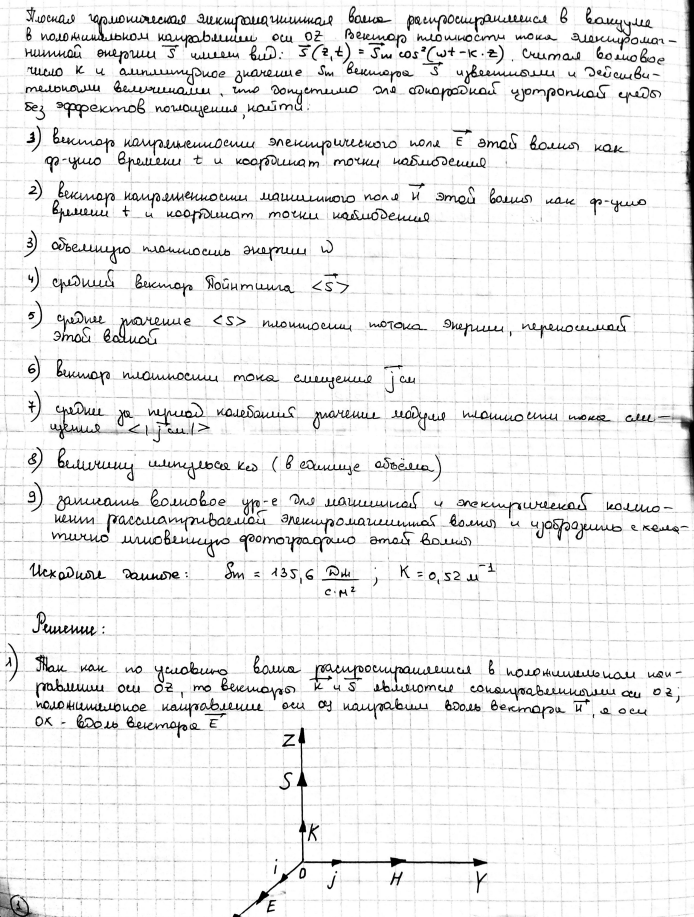 Плоская гармоническая электромагнитная волна распространяется в вакууме
в положительном направлении оси OZ. Вектор плотности тока электромаг-
нитной энергии S⃗ имеет вид: S⃗(z,t) = S⃗m cos²(ωt-k·z). Считая волновое
число k и амплитудное значение Sm вектора S⃗ известными и действи-
тельными величинами, что допустимо для однородной изотропной среды
без эффектов поглощения, найти:
1) вектор напряженности электрического поля E⃗ этой волны как
ф-цию времени t и координат точки наблюдения
2) вектор напряженности магнитного поля H⃗ этой волны как ф-цию
времени t и координат точки наблюдения
3) объемную плотность энергии ω
4) средний вектор Пойнтинга <S⃗>
5) среднее значение <S> плотности потока энергии, переносимой
этой волной
6) вектор плотности тока смещения j⃗см
7) среднее за период колебания значение модуля плотности тока сме-
щения <|j⃗см|>
8) величину импульса Kω (в единице объёма)
9) записать волновое ур-е для магнитной и электрической компо-
нент рассматриваемой электромагнитной волны и изобразить схема-
тично мгновенную фотографию этой волны
Исходные данные: Sm = 135,6 Дж/с·м² ; K = 0,52 м⁻¹
Решение:
1) Так как по условию волна распространяется в положительном нап-
равлении оси OZ, то векторы K⃗ и S⃗ являются сонаправленными оси OZ;
положительное направление оси OY направим вдоль вектора H⃗, а оси
OX - вдоль вектора E⃗
Z
S
K
i
O
j
H
Y
E
1